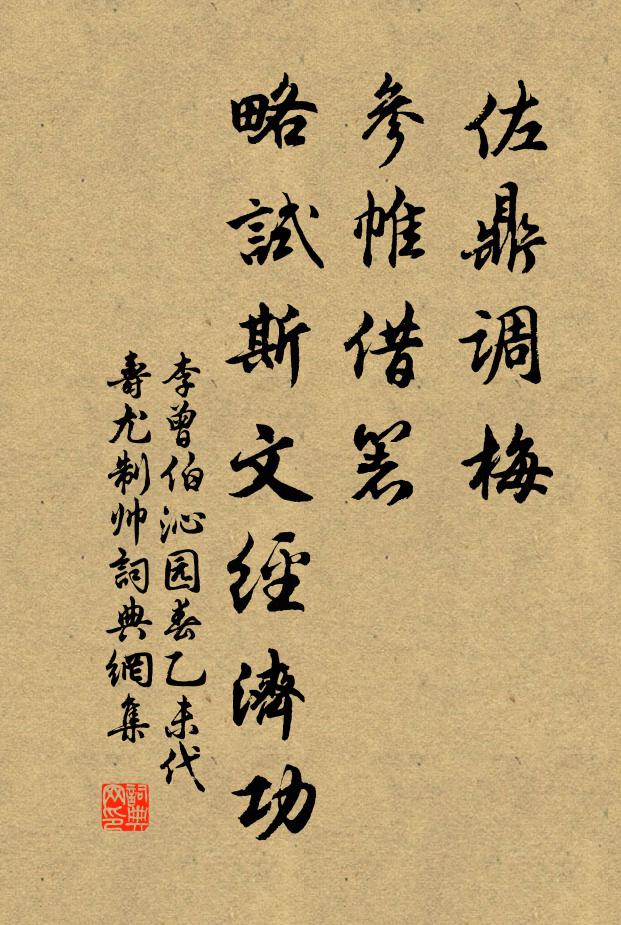 佐鼎调梅
参帷借箸
略試斯文經濟功
李曾伯沁园春乙未代
壽尤制帅詞典網集
詞典网印